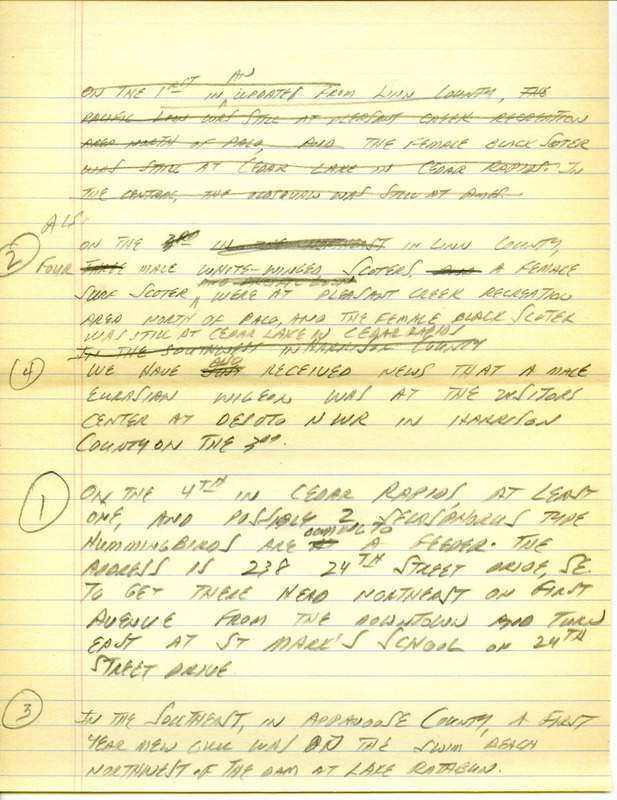 AN
ON THE 1RST IN UPDATED FROM LINN COUNTY, THE
PACIFIC LOON WAS STILL AT PLEASANT CREEK RECREATION
AREA NORTH OF PALO, AND THE FEMALE BLACK SCOTER
WAS STILL AT CEDAR LAKE IN CEDAR RAPIDS. IN
THE CENTRAL, THE OLDSQUAW WAS STILL AT AMES.
ALS
2 ON THE 3RD IN THE NORTHEAST IN LINN COUNTY,
FOUR THREE MALE WHITE-WINGED SCOTERS, A FEMALE
AND PACIFIC LOON
SURF SCOTER WERE AT PLEASANT CREEK RECREATION
AREA NORTH OF PALO, AND THE FEMALE BLACK SCOTER
WAS STILL AT CEDAR LAKE IN CEDAR RAPIDS
IN THE SOUTHWEST IN HARRISON COUNTY
4 WE HAVE JUST ALSO RECEIVED NEWS THAT A MALE
EURASIAN WIGEON WAS AT THE VISITORS
CENTER AT DESOTO NWR IN HARRISON
COUNTY ON THE 3RD.
1 ON THE 4TH IN CEDAR RAPIDS, AT LEAST
ONE, AND POSSIBLY 2 SELASPHORUS TYPE
COMING TO
HUMMINGBIRDS ARE A FEEDER. THE
ADDRESS IS 238 24TH STREET DRIVE, SE.
TO GET THERE HEAD NORTHEAST ON FIRST
AVENUE FROM THE DOWNTOWN AND TURN
EAST AT ST MARK'S SCHOOL ON 24TH
STREET DRIVE
3 IN THE SOUTHEAST, IN APPANOOSE COUNTY, A FIRST
YEAR MEW GULL WAS ON THE SWIM BEACH
NORTHWEST OF THE DAM AT LAKE RATHBUN.